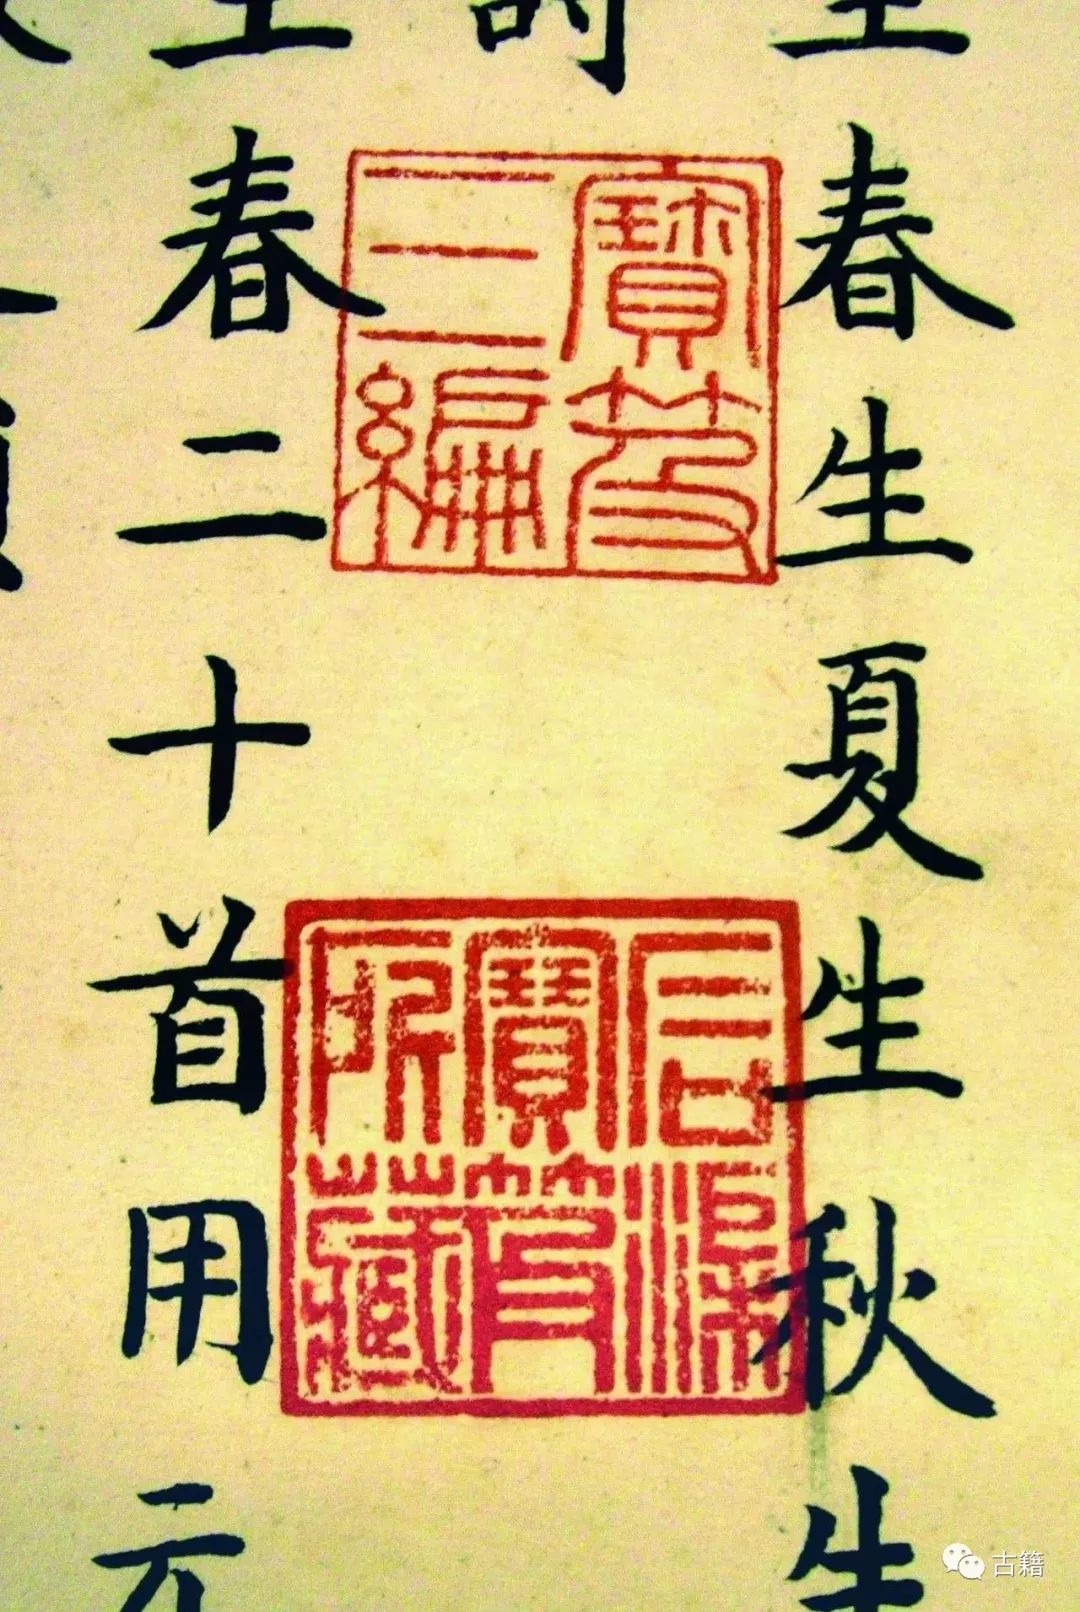 春生夏生秋生
寶笈
三編
石渠
寶笈
所藏
春二十首用元
古籍